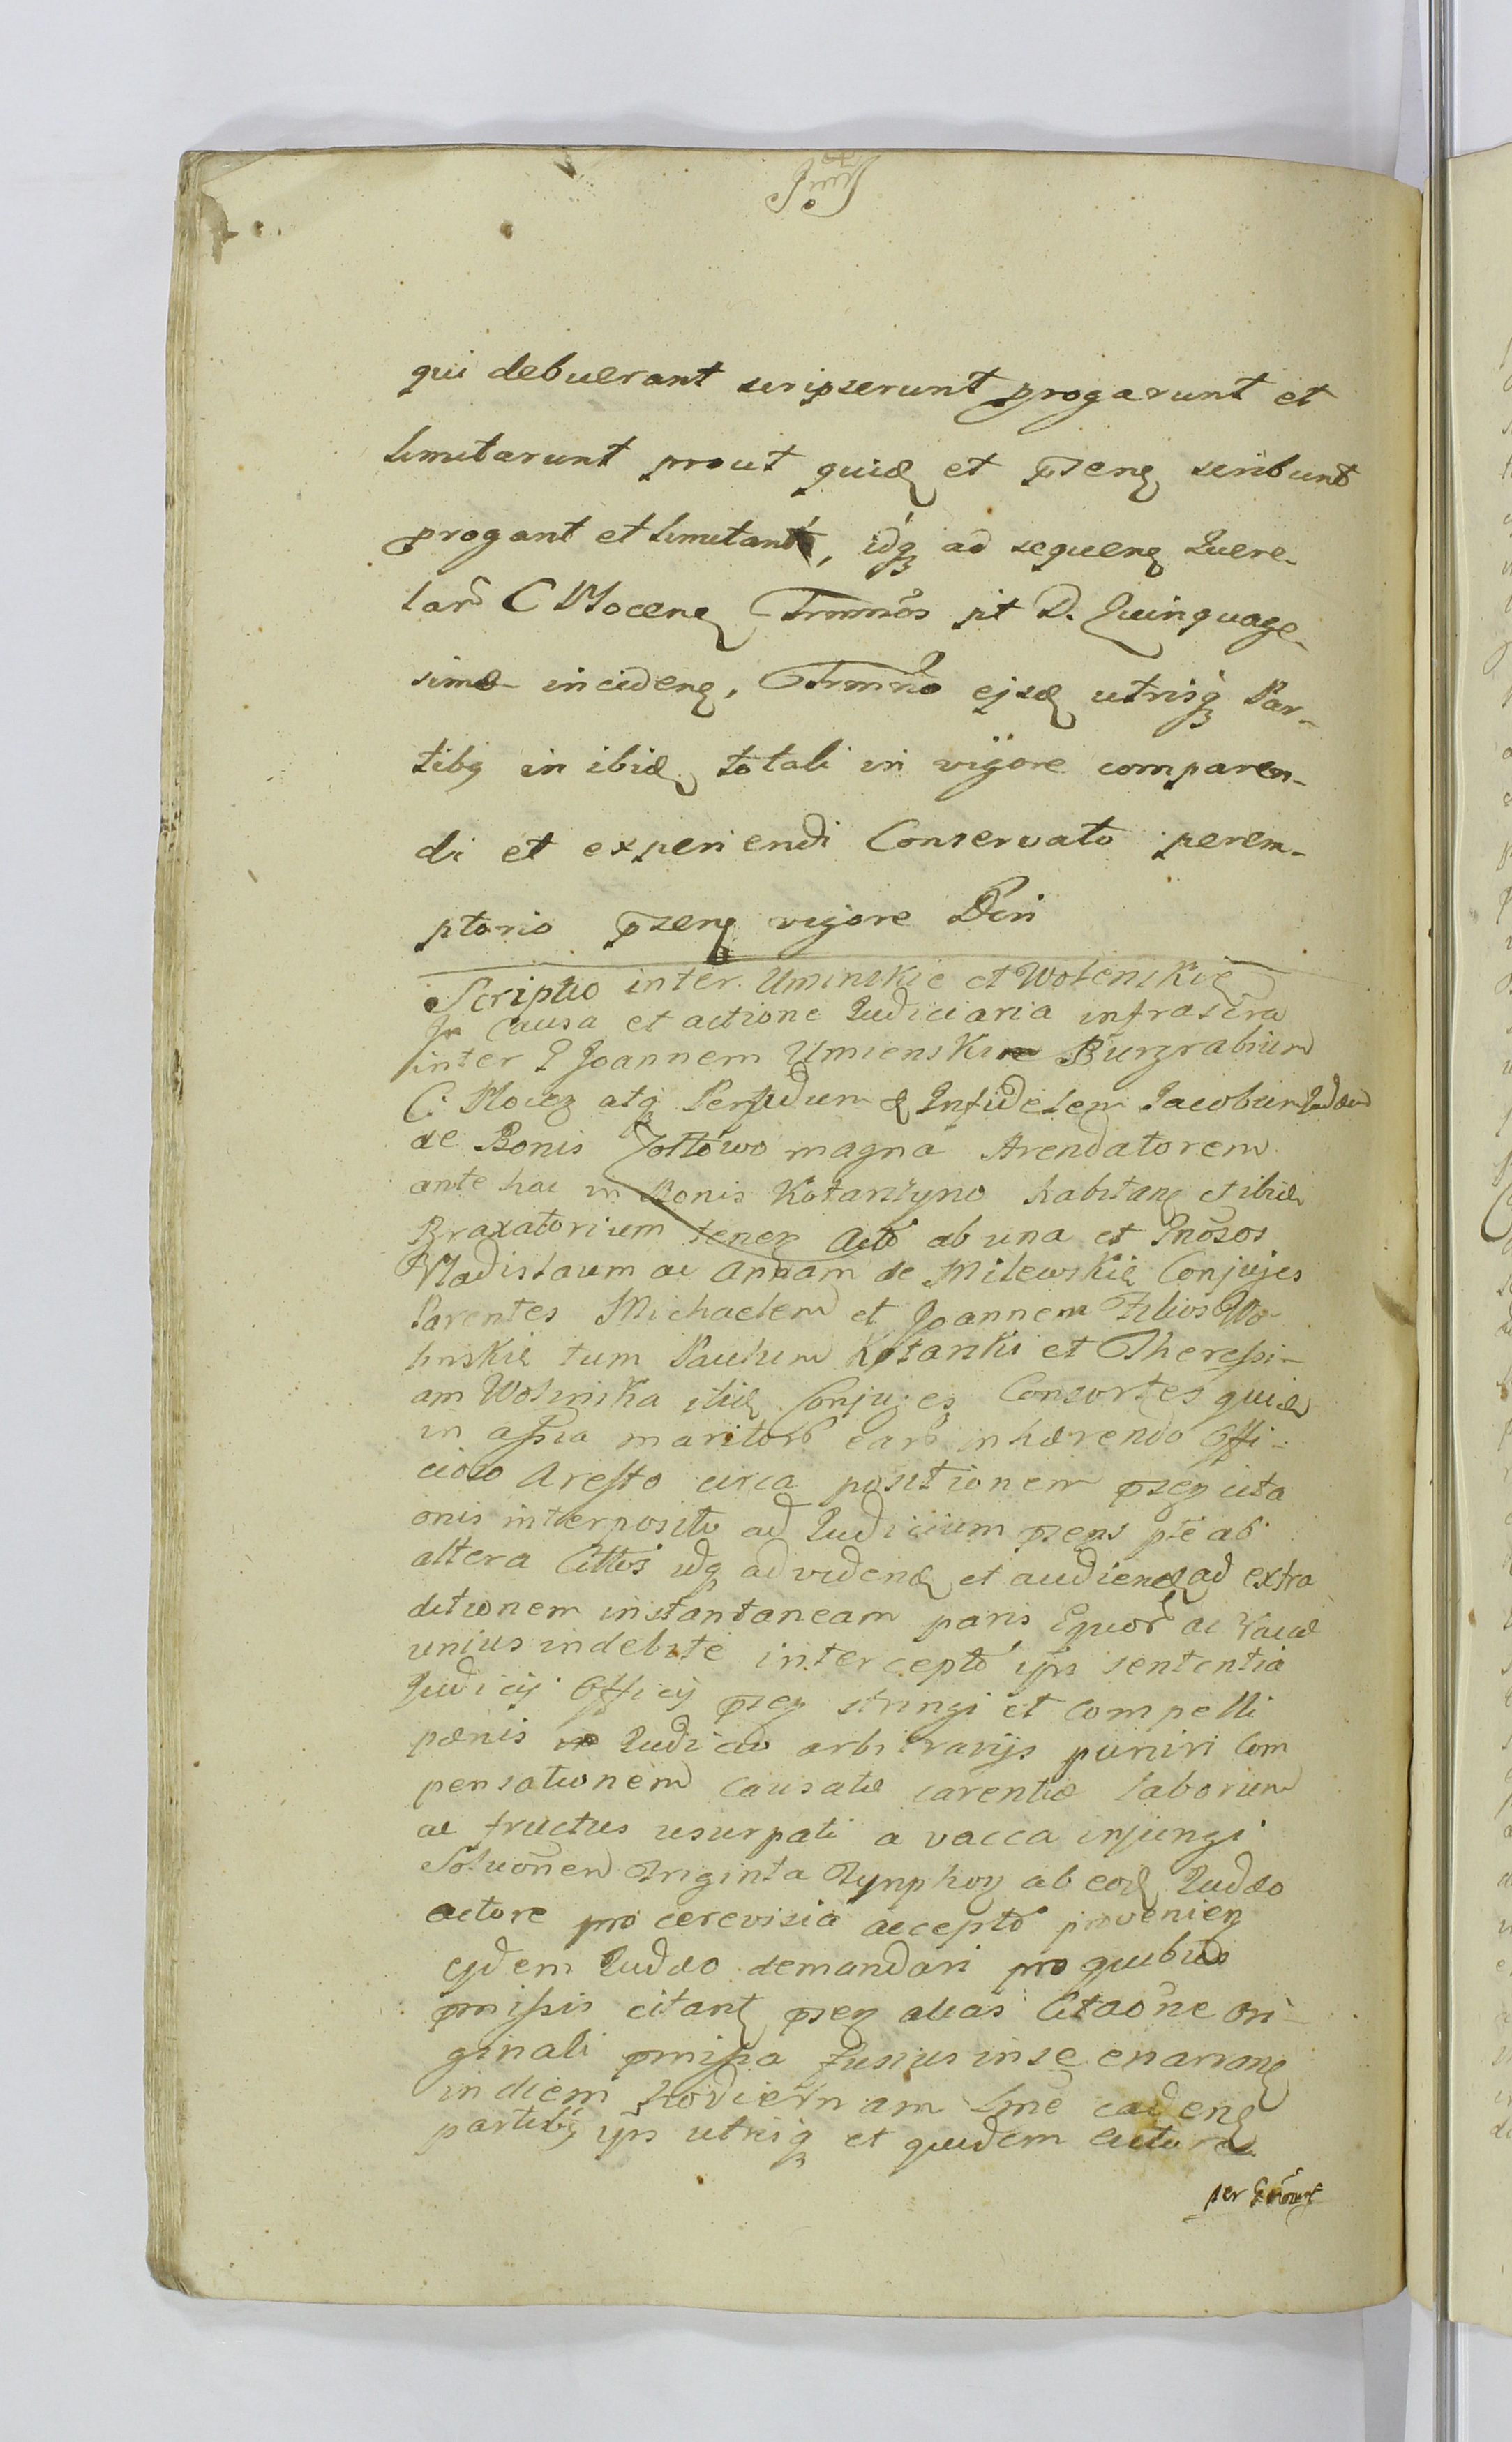 qui debuerant scripserunt progarunt et
limitarunt prout quidē et pṡenē scribunt
progant et limitant, idq̄ ad sequenē Quere-
larū C Plocenē Trmnos pt D. Quinquage-
simæ incidenē, Trmno ejsdē utrisq̄ Par-
tibq in ibidē totali in vigore comparen-
di et experiendi Conservato perem-
ptorio pṡenē vigore Dcri
Scriptio inter Uminskie et Wolenskie
In Causa et actione Judiciaria infrascra
inter G Joannem Umienski Burgrabium
C. Plocē atq̄ Perfidum & Infidelem Jacobum Judæum
de Bonis Zoltowo magna Arendatorem
ante hac in Bonis Kotarszyno habitanē et ibidē
Braxatorium tenē Acto ab una et Gnosos
Vladislaum ac Annam de Milewskie Conjuges
Parentes Michaelem et Joannem Filios Wo-
linskie tum Paulum Kotarski et Theressi-
am Wolinska itidē Conjuges Consortes quidē
in assia maritorū earū inhærendo Offi-
cioso Aresto circa positionem pṡenē cita
onis interposito ad Judicium pṡens pte ab
altera Cittos idq̄ ad videndē et audiendē ad extra
ditionem instantaneam paris Equorū ac Vaccæ
unius indebite intercepto ipis sententia
Judicij Officij pṡenē stringi et compelli
pænis Judicio arbitrarijs puniri Com
pensationem causatæ carentiæ laborum
ac fructus usurpati a vacca injungi
Solutionem Triginta Tynphorū ab eodē Judæo
actore pro cerevisia accepto provenienē
ejdem Judæo demandari pro quibus
pmissis citantē pṡenē alias Citaone ori-
ginali pmissa fusius in se enarranē
in diem hodiernam lme cadenē
partibq ipis utrisq̄ et quidem Actore
per Gnosum